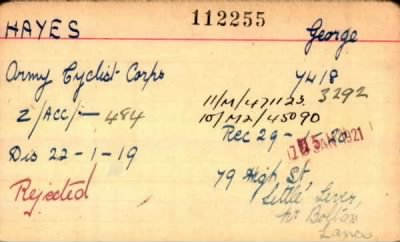 HAYES 112255 George
Army Cyclist Corps 7418
11/M/471123. 3292
Z/Acc/— 484 10/M2/45090
Rec 29-
JAN 1921
Dis 22-1-19
79 High St,
Rejected Little Lever,
nr Bolton
Lancs